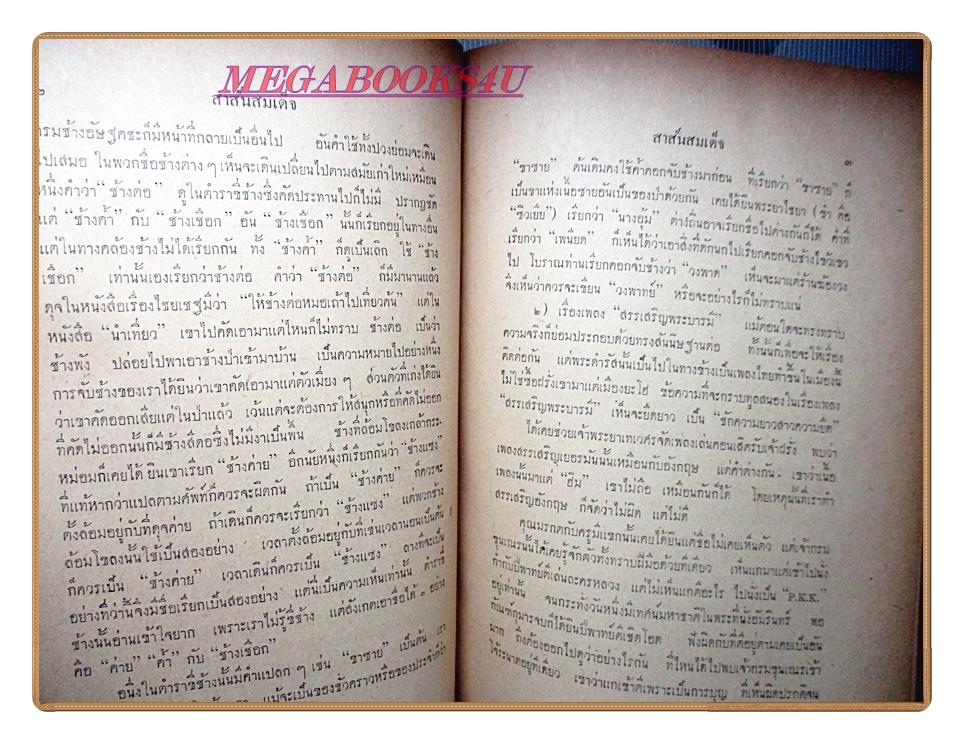 MEGABOOKS4U
๒
สาส์นสมเด็จ
กรมช้างอัษฎคชะก็มีหน้าที่กลายเป็นอื่นไป อันคำใช้ทั้งปวงย่อมจะเดิน
ไปเสมอ ในพวกชื่อช้างต่าง ๆ เห็นจะเดินเปลี่ยนไปตามสมัยเก่าใหม่เหมือน
หนึ่งคำว่า “ช้างต่อ” ดูในตำราขี่ช้างซึ่งคัดประทานไปก็ไม่มี ปรากฏชัด
แต่ “ช้างค้ำ” กับ “ช้างเชือก” อัน “ช้างเชือก” นั้นก็เรียกอยู่ในทางอื่น
แต่ในทางคล้องช้างไม่ได้เรียกกัน ทั้ง “ช้างค้ำ” ก็ดูเป็นเลิก ใช้ “ช้าง
เชือก” เท่านั้นเองเรียกว่าช้างต่อ คำว่า “ช้างต่อ” ก็มีมานานแล้ว
ดุจในหนังสือเรื่องไชยเชฐมีว่า “ให้ช้างต่อหมอเฒ่าไปเที่ยวค้น” แต่ใน
หนังสือ “นำเที่ยว” เขาไปคัดเอามาแต่ไหนก็ไม่ทราบ ช้างต่อ เป็นว่า
ช้างพัง ปล่อยไปพาเอาช้างป่าเข้ามาบ้าน เป็นความหมายไปอย่างหนึ่ง
การจับช้างของเราได้ยินว่าเขาคัดเอามาแต่ตัวเมื่อง ๆ ส่วนตัวที่เก่งได้ยิน
ว่าเขาคัดออกเสียแต่ในป่าแล้ว เว้นแต่จะต้องการให้สนุกหรือที่คัดไม่ออก
ที่คัดไม่ออกนั้นก็มีช้างสีดอซึ่งไม่มีงาเป็นพื้น ช้างที่ล้อมโขลงเกล้ากระ-
หม่อมก็เคยได้ยินเขาเรียก “ช้างค่าย” อีกนัยหนึ่งก็เรียกกันว่า “ช้างแซง”
ที่แท้หากว่าแปลตามศัพท์ก็ควรจะผิดกัน ถ้าเป็น “ช้างค่าย” ก็ควรจะ
ตั้งล้อมอยู่กับที่ดุจค่าย ถ้าเดินก็ควรจะเรียกว่า “ช้างแซง” แต่พวกช้าง
ล้อมโขลงนั้นใช้เป็นสองอย่าง เวลาตั้งล้อมอยู่กับที่เช่นเวลานอนเป็นต้น
ก็ควรเป็น “ช้างค่าย” เวลาเดินก็ควรเป็น “ช้างแซง” ลางทีจะเป็น
อย่างที่ว่านี้จึงมีชื่อเรียกเป็นสองอย่าง แต่นี่เป็นความเห็นเท่านั้น ตำราขี่
ช้างนั้นอ่านเข้าใจยาก เพราะเราไม่รู้ขี่ช้าง แต่สังเกตเอาชื่อได้ ๓ อย่าง
คือ “ค่าย” “ค้ำ” กับ “ช้างเชือก”
อนึ่งในตำราขี่ช้างนั้นมีคำแปลก ๆ เช่น “ชาชาย” เป็นต้น เรา
แม้จะเป็นของชั่วคราวหรือของประจำก็ว่า
สาส์นสมเด็จ
๓
“ชาชาย” ต้นเดิมคงใช้ค้ำคอกจับช้างมาก่อน ที่เรียกว่า “ชาชาย” ก็
เป็นขาแห่งเนื้อชายอันเป็นของป่าด้วยกัน เคยได้ยินพระยาไชยา (ขำ คือ
“ซิวเยีย”) เรียกว่า “นางอุ้ม” ต่างถิ่นอาจเรียกชื่อไปต่างกันก็ได้ คำที่
เรียกว่า “เพนียด” ก็เห็นได้ว่าเอาสิ่งที่ดักนกไปเรียกคอกจับช้างไขว้เขว
ไป โบราณท่านเรียกคอกจับช้างว่า “วงพาด” เห็นจะมาแต่ร้านฆ้องวง
จึงเห็นว่าควรจะเขียน “วงพาทย์” หรือจะอย่างไรก็ไม่ทราบแน่
๒) เรื่องเพลง “สรรเสริญพระบารมี” แม้ตอนใดจะทรงทราบ
ความจริงก็ย่อมประกอบด้วยทรงสันนิษฐานต่อ ทั้งนั้นก็เพื่อจะให้เรื่อง
ติดต่อกัน แต่พระดำรัสนั้นเป็นไปในทางข้างเป็นเพลงไทยทำขึ้นในเมืองนี้
ไม่ใช่ซื้อฝรั่งเขามาแต่เมืองยะโฮ ข้อความที่จะกราบทูลสนองในเรื่องเพลง
“สรรเสริญพระบารมี” เห็นจะยืดยาว เป็น “ชักความยาวสาวความยืด”
ได้เคยช่วยเจ้าพระยาเทเวศร์จัดเพลงเล่นคอนเสิตรับเจ้าฝรั่ง พบว่า
เพลงสรรเสริญเยอรมันนั้นเหมือนกับอังกฤษ แต่คำต่างกัน เขาว่าเนื้อ
เพลงนั้นมาแต่ “ฮิม” เขาไม่ถือ เหมือนกันก็ได้ โดยเหตุนั้นที่เราทำ
สรรเสริญอังกฤษ ก็จัดว่าไม่ผิด แต่ไม่ดี
คุณมรกตกับครูมีแขกนั้นเคยได้ยินแต่ชื่อไม่เคยเห็นตัว แต่เจ้ากรม
ขุนเณรนั้นได้เคยรู้จักตัวทั้งทราบฝีมือด้วยทีเดียว เห็นแกมาแต่เช้าไปนั่ง
กำกับปี่พาทย์ตีเล่นละครหลวง แต่ไม่เห็นแกตีอะไร ไปนั่งเป็น “P.K.K.”
อยู่เท่านั้น จนกระทั่งวันหนึ่งมีเทศน์มหาชาติในพระที่นั่งอัมรินทร์ พอ
กัณฑ์กุมารจบก็ได้ยินปี่พาทย์ตีเชิดโอด ฟังผิดกับที่ตีอยู่ตามเคยเป็นอัน
มาก ถึงต้องออกไปดูว่าอย่างไรกัน ที่ไหนได้ไปพบเจ้ากรมขุนเณรเข้า
โจ้ระนาดอยู่ทีเดียว เขาว่าแกเข้าตีเพราะเป็นการบุญ ที่เห็นผิดปรกติจน